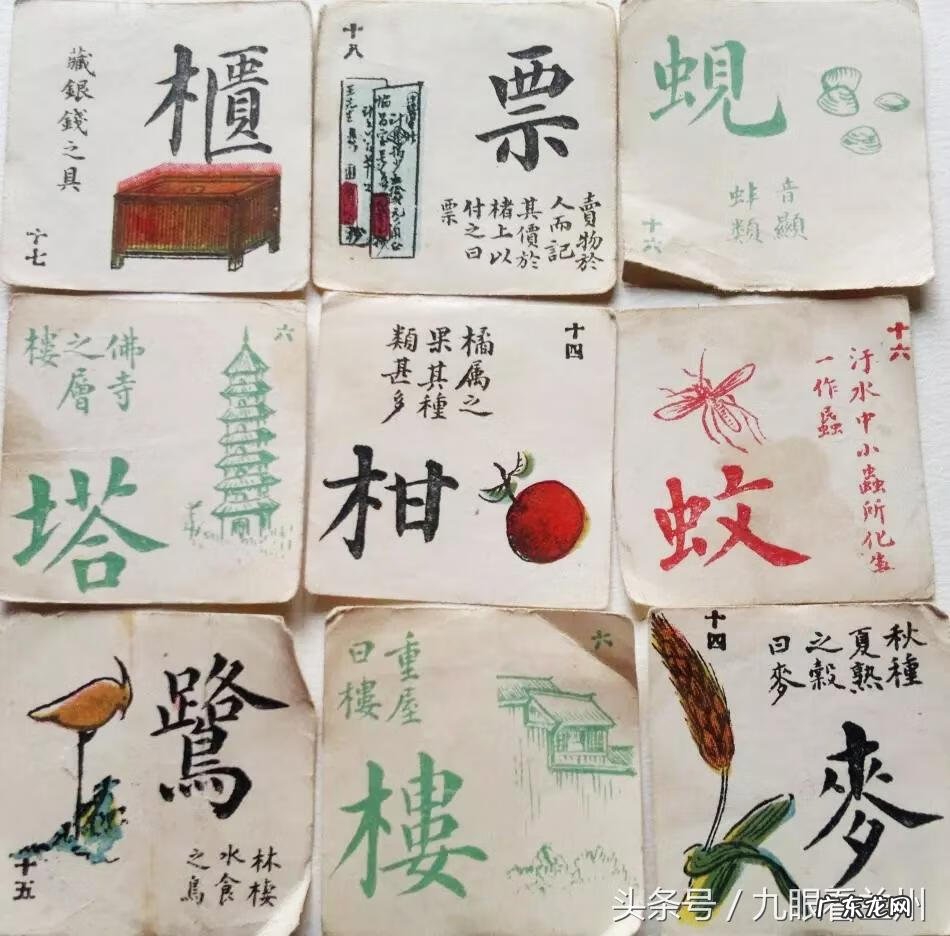 櫃
藏銀錢之具
十七
十八
票
賣物於
人而記
其價於
楮上以
付之曰
票
蜆
音顯
蚌類
十六
六
佛寺
之層
樓
塔
十四
橘属之
果其種
類甚多
柑
十六
汙水中小蟲所化生
一作蟁
蚊
鷺
林棲
水食
之鳥
十五
六
重屋
曰樓
樓
十四
秋種
夏熟
之穀
曰麥
麥
头条号 / 九眼看兰州
广东龙网